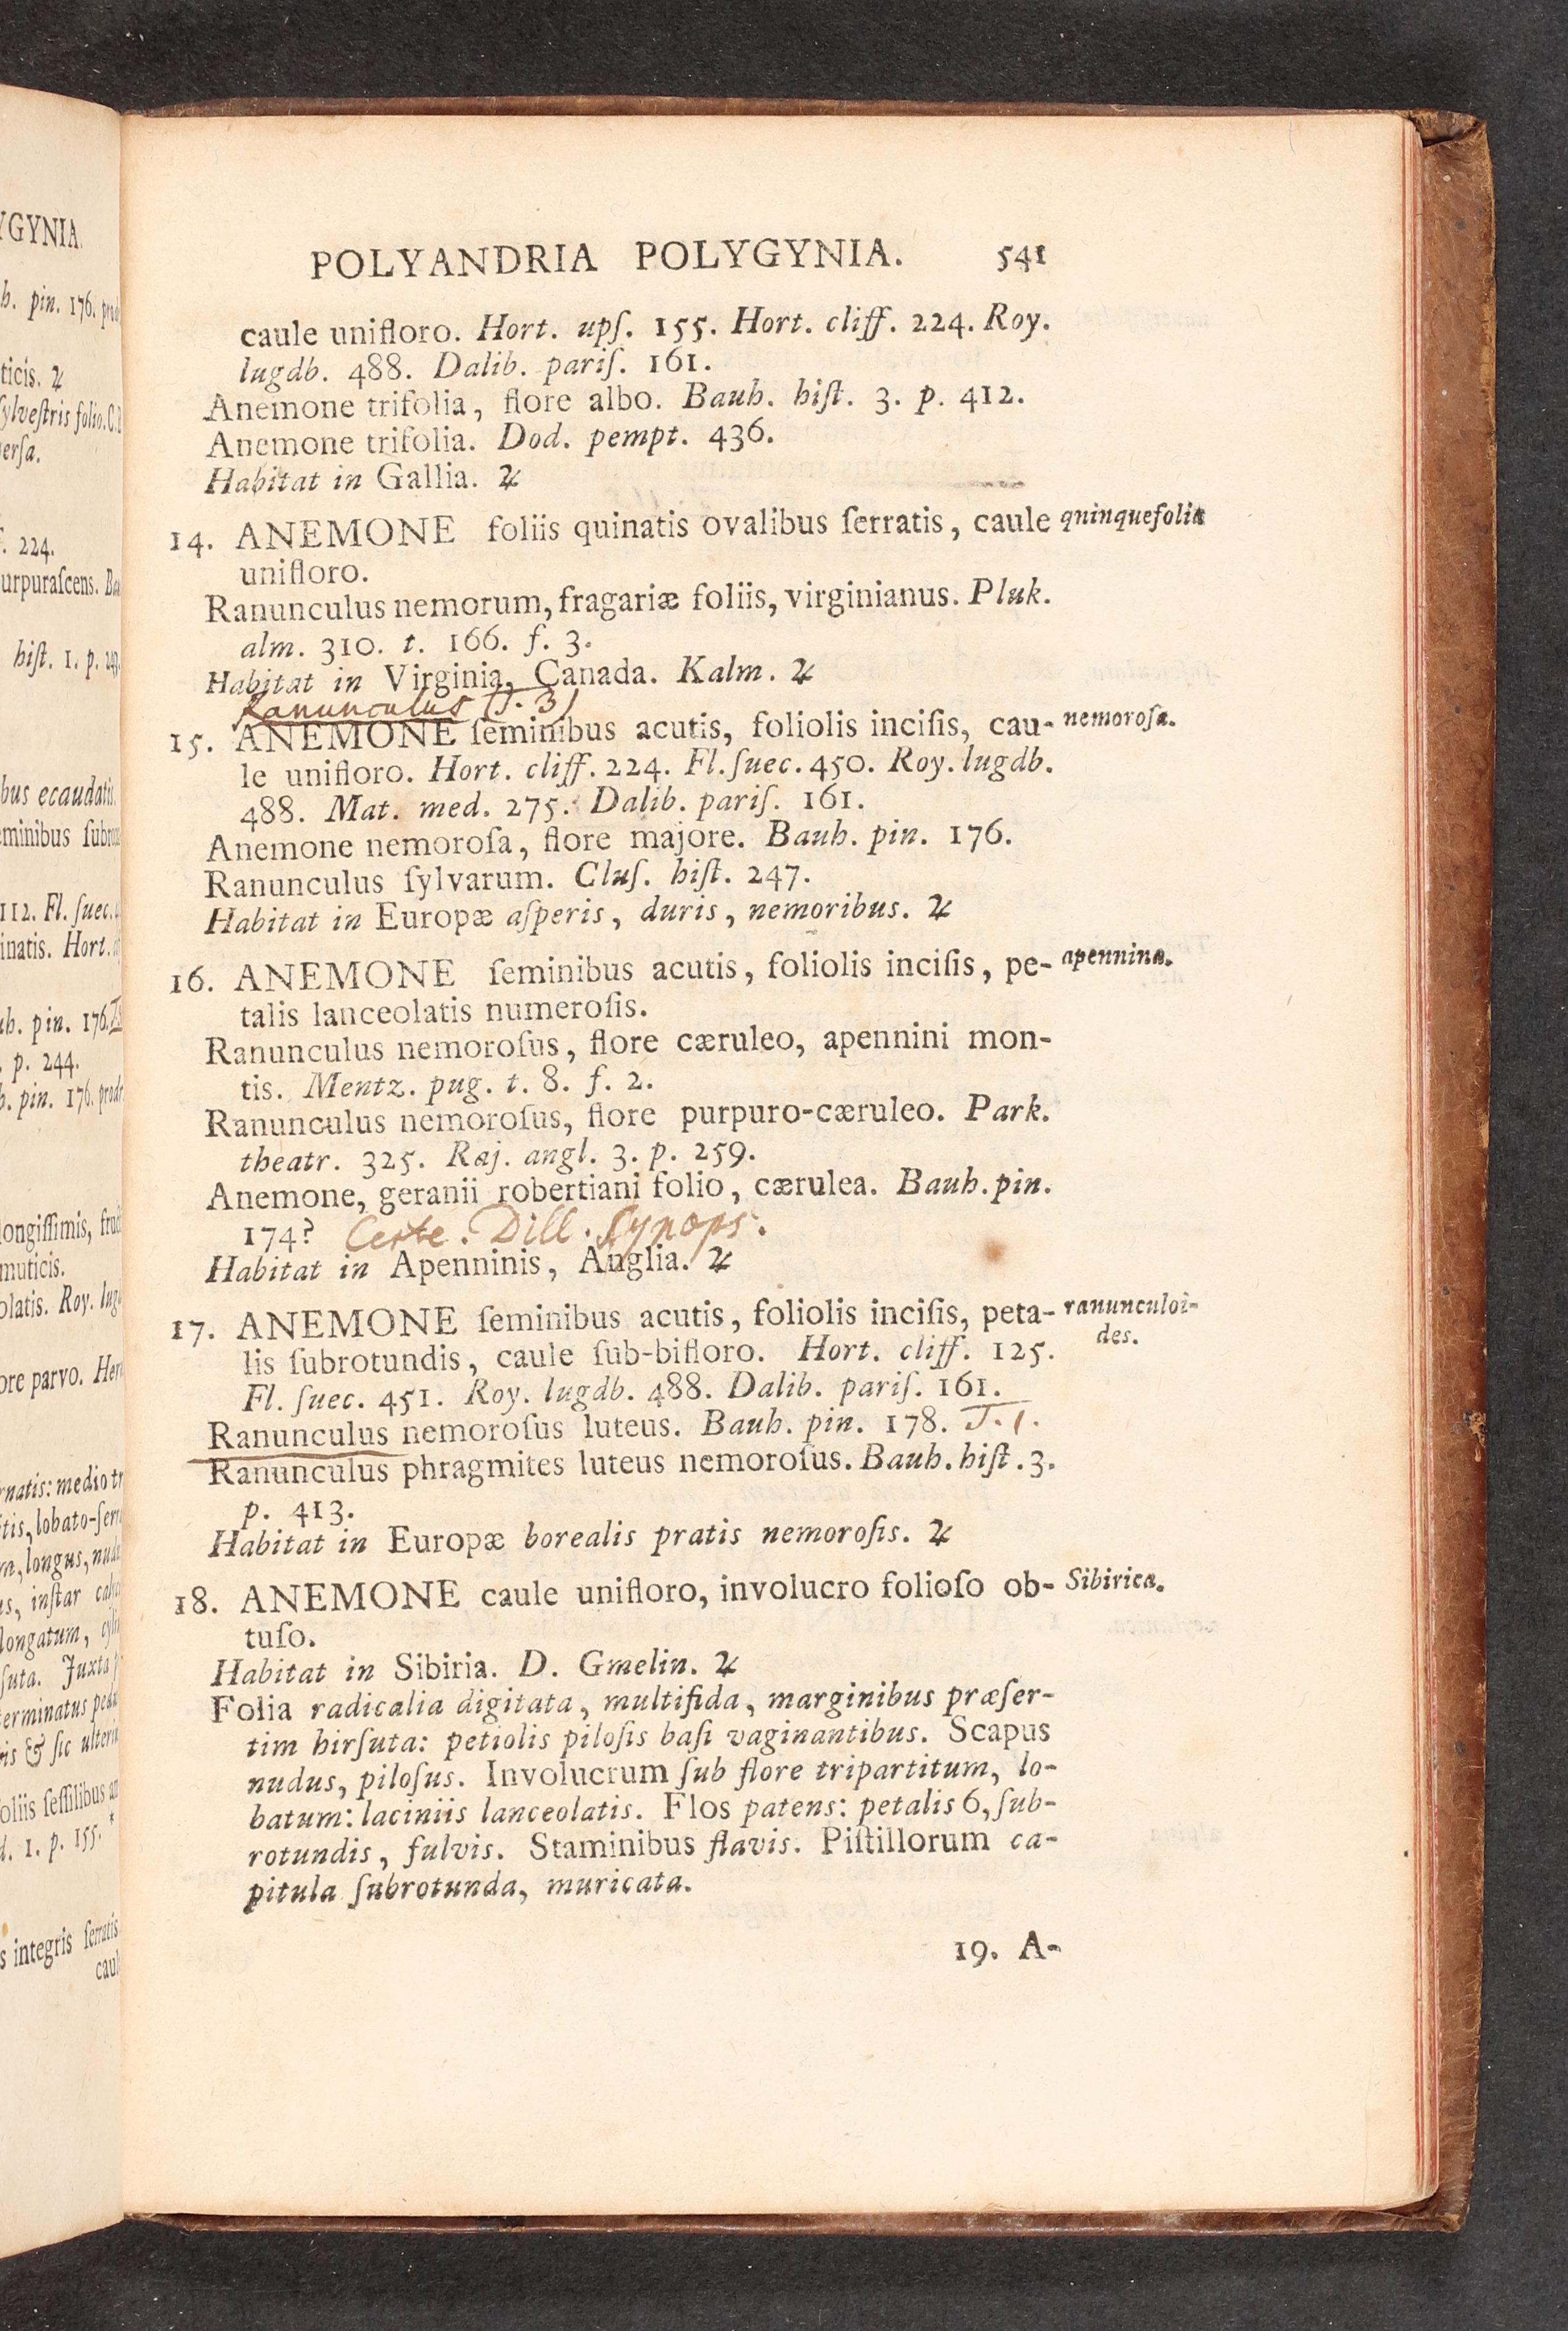 POLYANDRIA POLYGYNIA. 541
caule unifloro. Hort. upſ. 155. Hort. cliff. 224. Roy.
lugdb. 488. Dalib. pariſ. 161.
Anemone trifolia, flore albo. Bauh. hiſt. 3. p. 412.
Anemone trifolia. Dod. pempt. 436.
Habitat in Gallia. ♃
14. ANEMONE foliis quinatis ovalibus ſerratis, caule quinquefolia
unifloro.
Ranunculus nemorum, fragariæ foliis, virginianus. Pluk.
alm. 310. t. 166. f. 3.
Habitat in Virginia, Canada. Kalm. ♃
Ranunculus (T. 3)
15. ANEMONE ſeminibus acutis, foliolis inciſis, cau- nemoroſa.
le unifloro. Hort. cliff. 224. Fl. ſuec. 450. Roy. lugdb.
488. Mat. med. 275. Dalib. pariſ. 161.
Anemone nemoroſa, flore majore. Bauh. pin. 176.
Ranunculus ſylvarum. Cluſ. hiſt. 247.
Habitat in Europæ aſperis, duris, nemoribus. ♃
16. ANEMONE ſeminibus acutis, foliolis inciſis, pe- apennina.
talis lanceolatis numeroſis.
Ranunculus nemoroſus, flore cæruleo, apennini mon-
tis. Mentz. pug. t. 8. f. 2.
Ranunculus nemoroſus, flore purpuro-cæruleo. Park.
theatr. 325. Raj. angl. 3. p. 259.
Anemone, geranii robertiani folio, cærulea. Bauh. pin.
174? Certe. Dill. Synops.
Habitat in Apenninis, Anglia. ♃
17. ANEMONE ſeminibus acutis, foliolis inciſis, peta- ranunculoi-
des.
lis ſubrotundis, caule ſub-bifloro. Hort. cliff. 125.
Fl. ſuec. 451. Roy. lugdb. 488. Dalib. pariſ. 161.
Ranunculus nemoroſus luteus. Bauh. pin. 178. T. 1.
Ranunculus phragmites luteus nemoroſus. Bauh. hiſt. 3.
p. 413.
Habitat in Europæ borealis pratis nemoroſis. ♃
18. ANEMONE caule unifloro, involucro folioſo ob- Sibirica.
tuſo.
Habitat in Sibiria. D. Gmelin. ♃
Folia radicalia digitata, multifida, marginibus præſer-
tim hirſuta: petiolis piloſis baſi vaginantibus. Scapus
nudus, piloſus. Involucrum ſub flore tripartitum, lo-
batum: laciniis lanceolatis. Flos patens: petalis 6, ſub-
rotundis, fulvis. Staminibus flavis. Piſtillorum ca-
pitula ſubrotunda, muricata.
19. A-